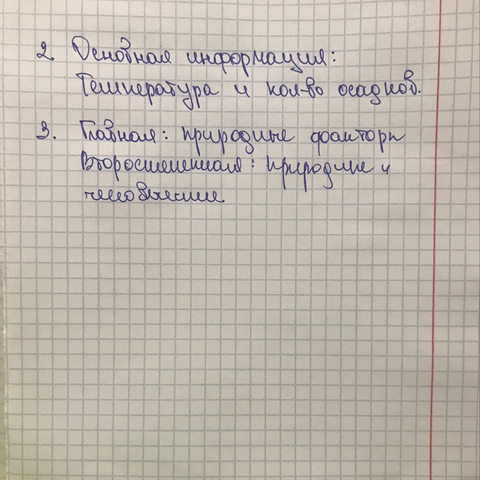 2. Основная информация:
Температура и кол-во осадков.
3. Главная: природные факторы
Второстепенная: природные и
человеческие